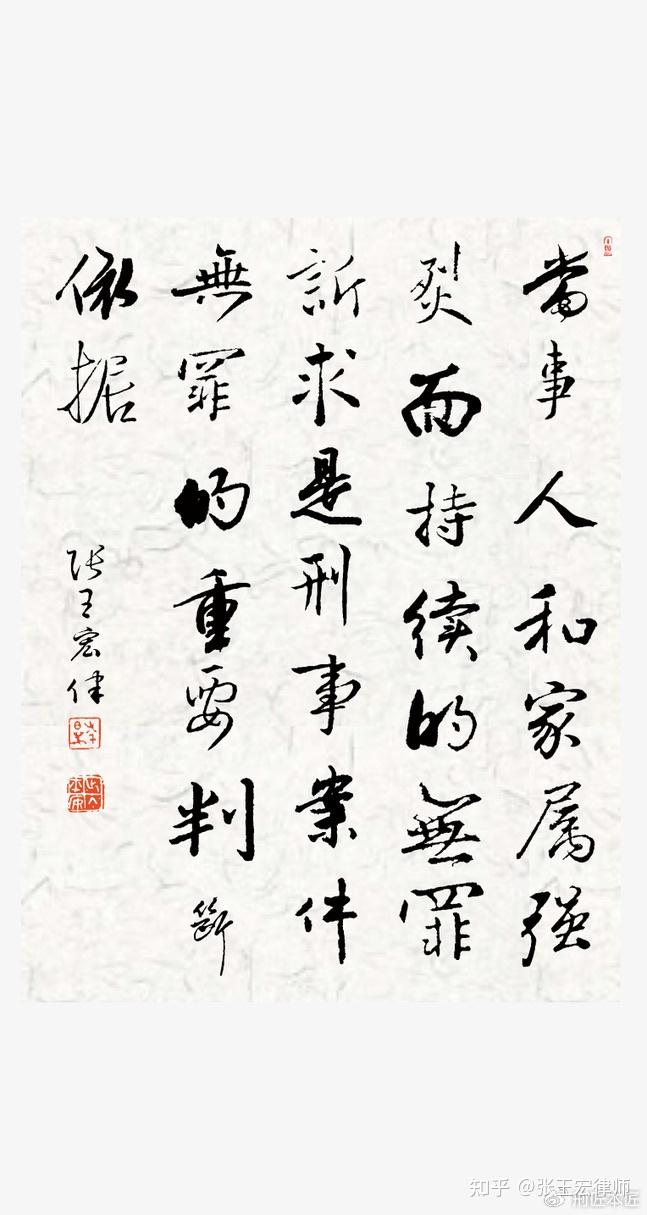 當事人和家属强
烈而持续的無罪
訴求是刑事案件
無罪的重要判斷
依据
张王宏律
知乎 @张王宏律师
刑庭本庭